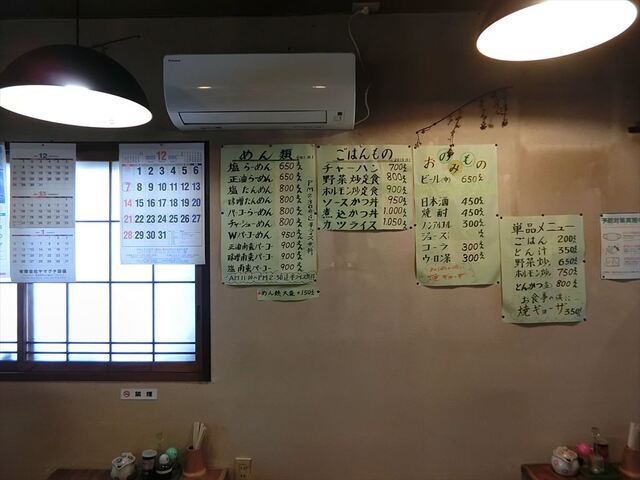 12
1
12
1 2 3 4 5 6
7 8 9 10 11 12 13
14 15 16 17 18 19 20
21 22 23 24 25 26 27
28 29 30 31
有限会社ヤマグチ設備
禁煙
めん類
塩らーめん 650
正油らーめん 650
塩たんめん 800
味噌たんめん 800
パーコーらーめん 800
チャーシューめん 800
Wパーコーめん 950
正油南蛮パーコー 900
味噌南蛮パーコー 900
塩南蛮パーコー 900
めん類大盛 150
ごはんもの
チャーハン 700
野菜炒定食 800
ホルモン炒定食 900
ソースかつ丼 950
煮込かつ丼 1,000
カツライス 1,050
おのみもの
ビール(中) 650
日本酒 450
焼酎 450
ノンアルコール 300
ジュース
コーラ 300
ウーロン茶 300
単品メニュー
ごはん 200
どん汁 350
野菜炒 650
ホルモン炒 750
とんかつ 800
お食事の後に
焼ギョーザ 350